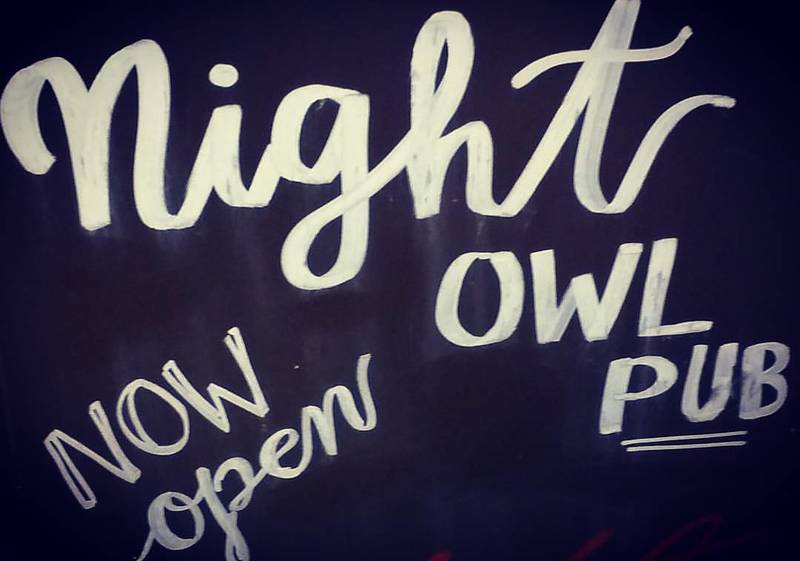 Night
OWL
PUB
NOW
open